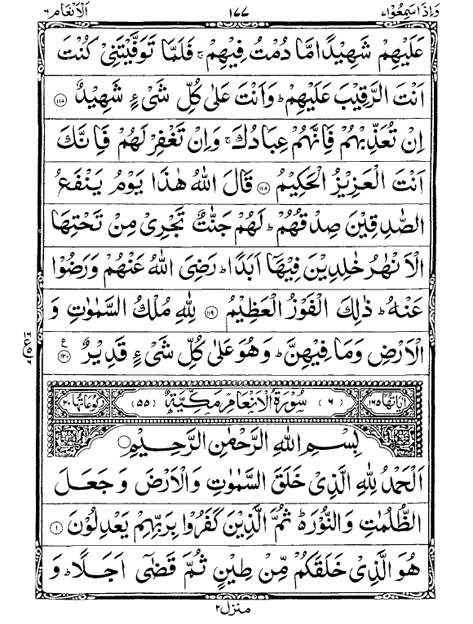 وَاِذَا سَمِعُوۡا ٧ ١٧٧ الۡاَنۡعَام ٦
عَلَيۡهِمۡ شَهِيۡدًا مَّا دُمۡتُ فِيۡهِمۡ ۚ فَلَمَّا تَوَفَّيۡتَنِىۡ كُنۡتَ
اَنۡتَ الرَّقِيۡبَ عَلَيۡهِمۡ ؕ وَاَنۡتَ عَلٰى كُلِّ شَىۡءٍ شَهِيۡدٌ ﴿١١٧﴾
اِنۡ تُعَذِّبۡهُمۡ فَاِنَّهُمۡ عِبَادُكَ ۚ وَاِنۡ تَغۡفِرۡ لَهُمۡ فَاِنَّكَ
اَنۡتَ الۡعَزِيۡزُ الۡحَكِيۡمُ ﴿١١٨﴾ قَالَ اللّٰهُ هٰذَا يَوۡمُ يَنۡفَعُ
الصّٰدِقِيۡنَ صِدۡقُهُمۡ ؕ لَهُمۡ جَنّٰتٌ تَجۡرِىۡ مِنۡ تَحۡتِهَا
الۡاَنۡهٰرُ خٰلِدِيۡنَ فِيۡهَاۤ اَبَدًا ؕ رَضِىَ اللّٰهُ عَنۡهُمۡ وَرَضُوۡا
عَنۡهُ ؕ ذٰلِكَ الۡفَوۡزُ الۡعَظِيۡمُ ﴿١١٩﴾ لِلّٰهِ مُلۡكُ السَّمٰوٰتِ وَ
الۡاَرۡضِ وَمَا فِيۡهِنَّ ؕ وَهُوَ عَلٰى كُلِّ شَىۡءٍ قَدِيۡرٌ ﴿١٢٠﴾ ع
اٰيَاتُهَا ١٦٥ (٦) سُوۡرَةُ الۡاَنۡعَامِ مَكِّيَّةٌ (٥٥) رُكُوۡعَاتُهَا ٢٠
بِسۡمِ اللّٰهِ الرَّحۡمٰنِ الرَّحِيۡمِ
اَلۡحَمۡدُ لِلّٰهِ الَّذِىۡ خَلَقَ السَّمٰوٰتِ وَالۡاَرۡضَ وَجَعَلَ
الظُّلُمٰتِ وَالنُّوۡرَ ؕ ثُمَّ الَّذِيۡنَ كَفَرُوۡا بِرَبِّهِمۡ يَعۡدِلُوۡنَ ﴿١﴾
هُوَ الَّذِىۡ خَلَقَكُمۡ مِّنۡ طِيۡنٍ ثُمَّ قَضٰٓى اَجَلًا ؕ وَ
منزل ٢